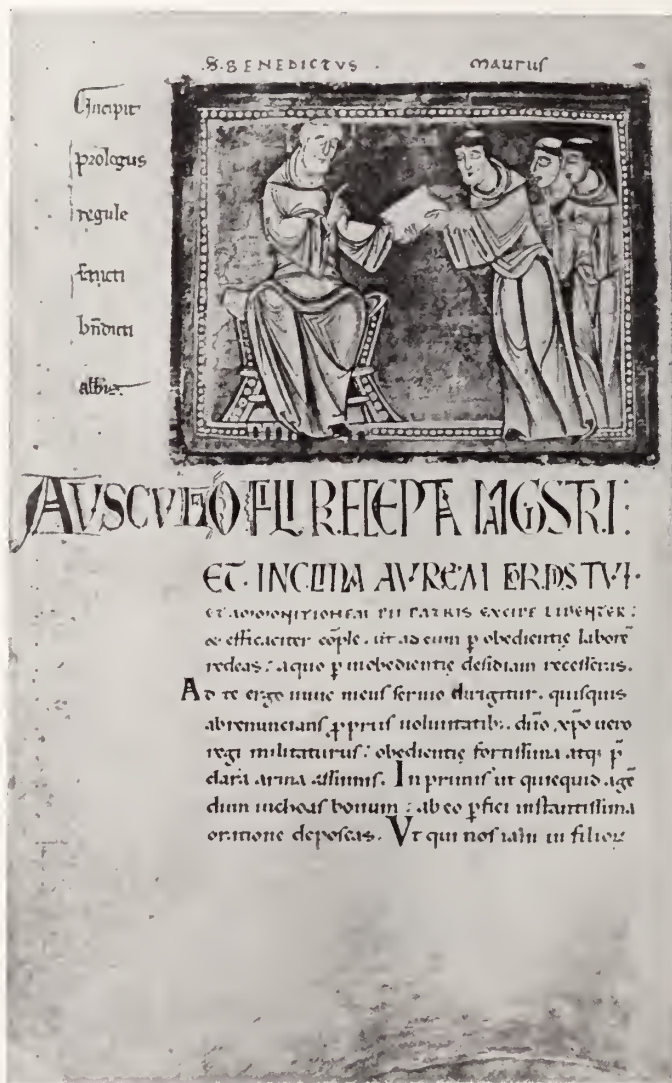 S. BENEDICTVS .
maurus
Incipit
prologus
regule
sancti
bn̄dicti
abbis.
AVSCVLTA O FILI PRECEPTA MAGISTRI:
ET INCLINA AVREM CORDIS TVI.
ET ADMONITIONEM PII PATRIS EXCIPE LIBENTER:
& efficaciter cōple. ut ad eum ꝑ obedientię laborē
redeas: a quo ꝑ inobedientię desidiam recesseras.
Ad te ergo nunc meus sermo dirigitur. quisquis
abrenuncians ꝓpriis uoluntatib; dn̄o xp̄o uero
regi militaturus: obedientię fortissima atq; p̄
clara arma assumis. In primis ut quicquid agen
dum inchoas bonum: ab eo ꝑfici instantissima
oratione deposcas. Vt qui nos iam in filioꝝ